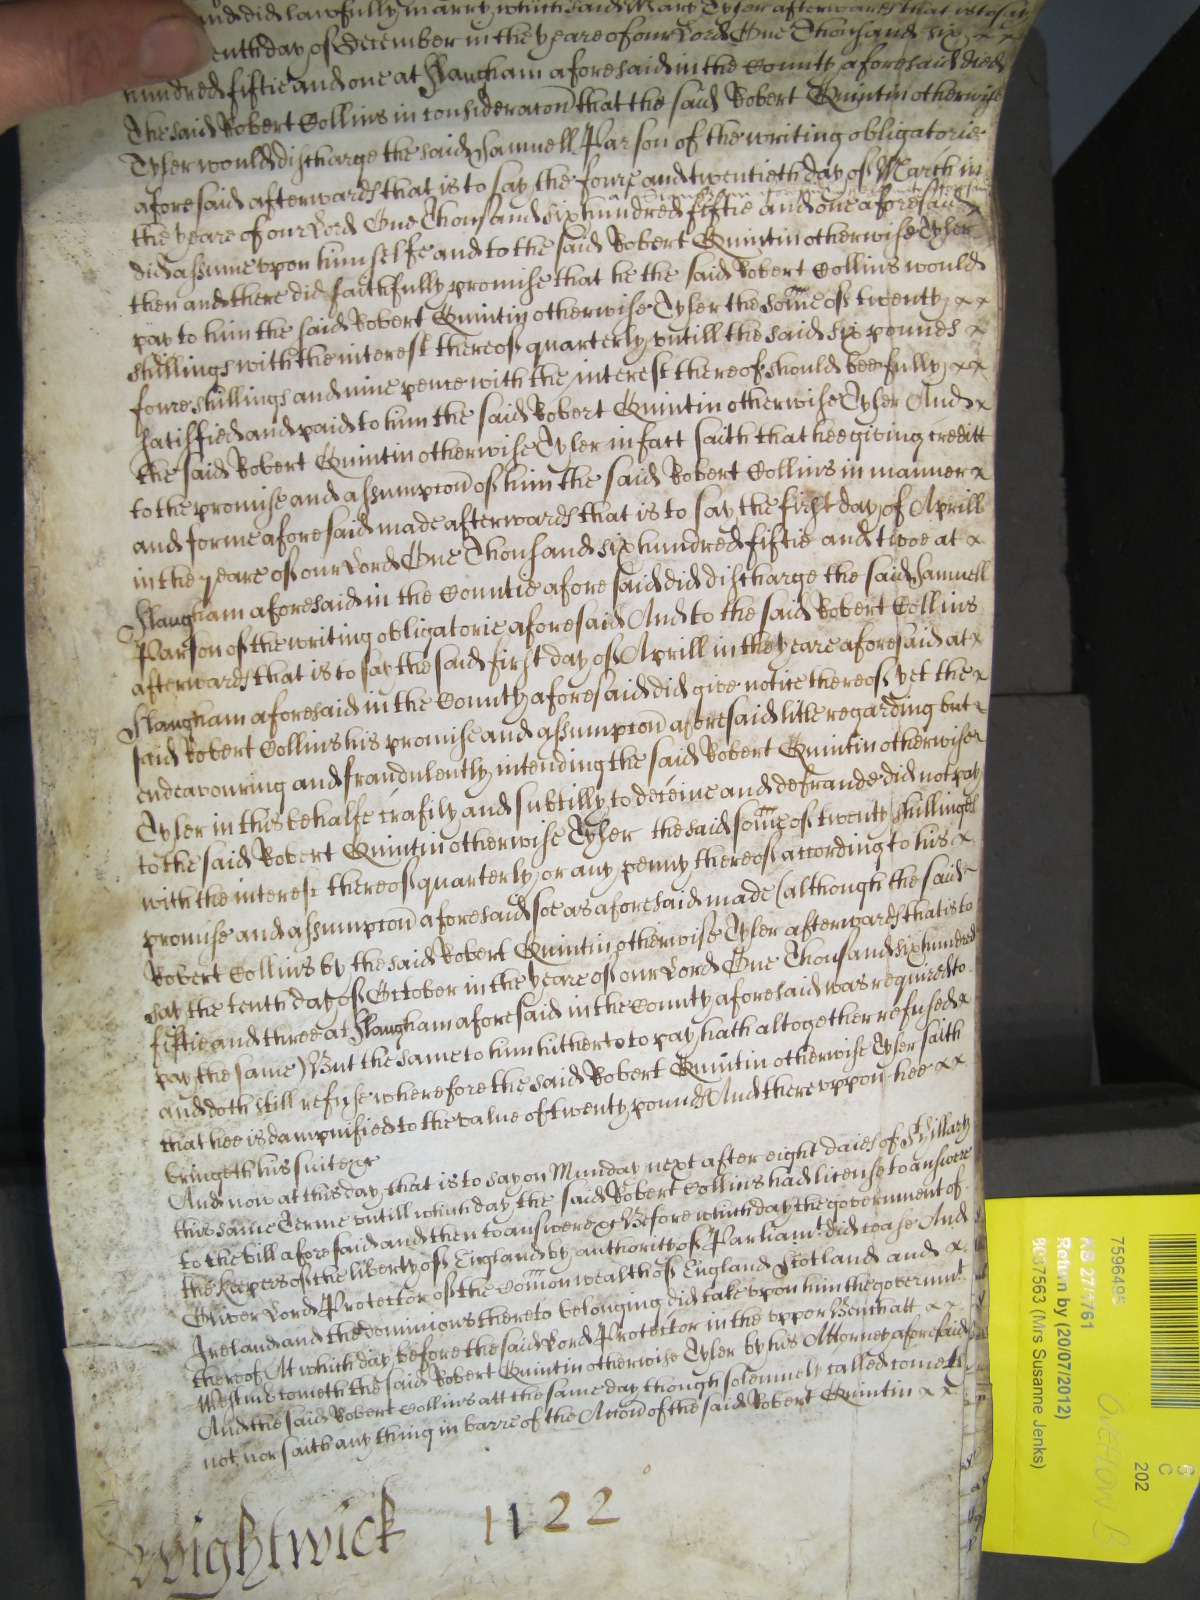 and did lawfully marry which said Mary Tyler afterwards that is to say
enth day of December in the yeare of our Lord One Thousand six x x
hundred fiftie and one at Slaugham aforesaid in the County aforesaid died
The said Robert Collins in consideracon that the said Robert Quintin otherwise
Tyler would discharge the said Samuell Parson of the writing obligatorie
aforesaid afterwards that is to say the foure and twentieth day of March in
the yeare of our Lord One Thousand six hundred fiftie and one aforesaid x
did assume upon himselfe and to the said Robert Quintin otherwise Tyler
then and there did faithfully promise that he the said Robert Collins would
pay to him the said Robert Quintin otherwise Tyler the some of twenty x x
shillings with the interest thereof quarterly untill the said six pounds x
foure shillings and nine pence with the interest thereof should bee fully x x
satisfied and paid to him the said Robert Quintin otherwise Tyler And x
the said Robert Quintin otherwise Tyler in fact saith that hee giving creditt
to the promise and assumpcon of him the said Robert Collins in manner x
and forme aforesaid made afterwards that is to say the first day of Aprill
in the yeare of our Lord One Thousand six hundred fiftie and twoe at x
Slaugham aforesaid in the Countie aforesaid did discharge the said Samuell
Parson of the writing obligatorie aforesaid And to the said Robert Collins
afterwards that is to say the said first day of Aprill in the yeare aforesaid at x
Slaugham aforesaid in the County aforesaid did give notice thereof yet the x
said Robert Collins his promise and assumpcon aforesaid litle regarding but x
endeavouring and fraudulently intending the said Robert Quintin otherwise
Tyler in this behalfe craftily and subtilly to deceive and defraude did not pay
to the said Robert Quintin otherwise Tyler the said some of twenty shillings
with the interest thereof quarterly or any penny thereof according to his x
promise and assumpcon aforesaid soe as aforesaid made (although the said
Robert Collins by the said Robert Quintin otherwise Tyler afterwards that is to
say the tenth day of October in the yeare of our Lord One Thousand six hundred
fiftie and three at Slaugham aforesaid in the County aforesaid was required to
pay the same) But the same to him hitherto to pay hath altogether refused x
and doth still refuse wherefore the said Robert Quintin otherwise Tyler saith
that hee is dampnified to the value of twenty pounds And thereuppon hee x x
bringeth his suite &c
And now at this day that is to say on Munday next after eight daies of St Hillary
this same Terme untill which day the said Robert Collins had license to answere
to the bill aforesaid and then to answere &c Before which day the government of
the keepers of the liberty of England by authority of Parliamt did cease And
Oliver Lord Protector of the Comonwealth of England Scotland and x
Ireland and the dominions thereto belonging did take upon him the governmt
thereof At which day before the said Lord Protector in the upper Bench att x x
Westmr cometh the said Robert Quintin otherwise Tyler by his Attorney aforesaid
And the said Robert Collins att the same day though solemnely called cometh
not, nor saith any thing in barre of the Accon of the said Robert Quintin x x
Wightwick 1122
7596495
KB 27/1761
Return by (20/07/2012)
8037563 (Mrs Susanne Jenks)
S
C
202
Overflow B